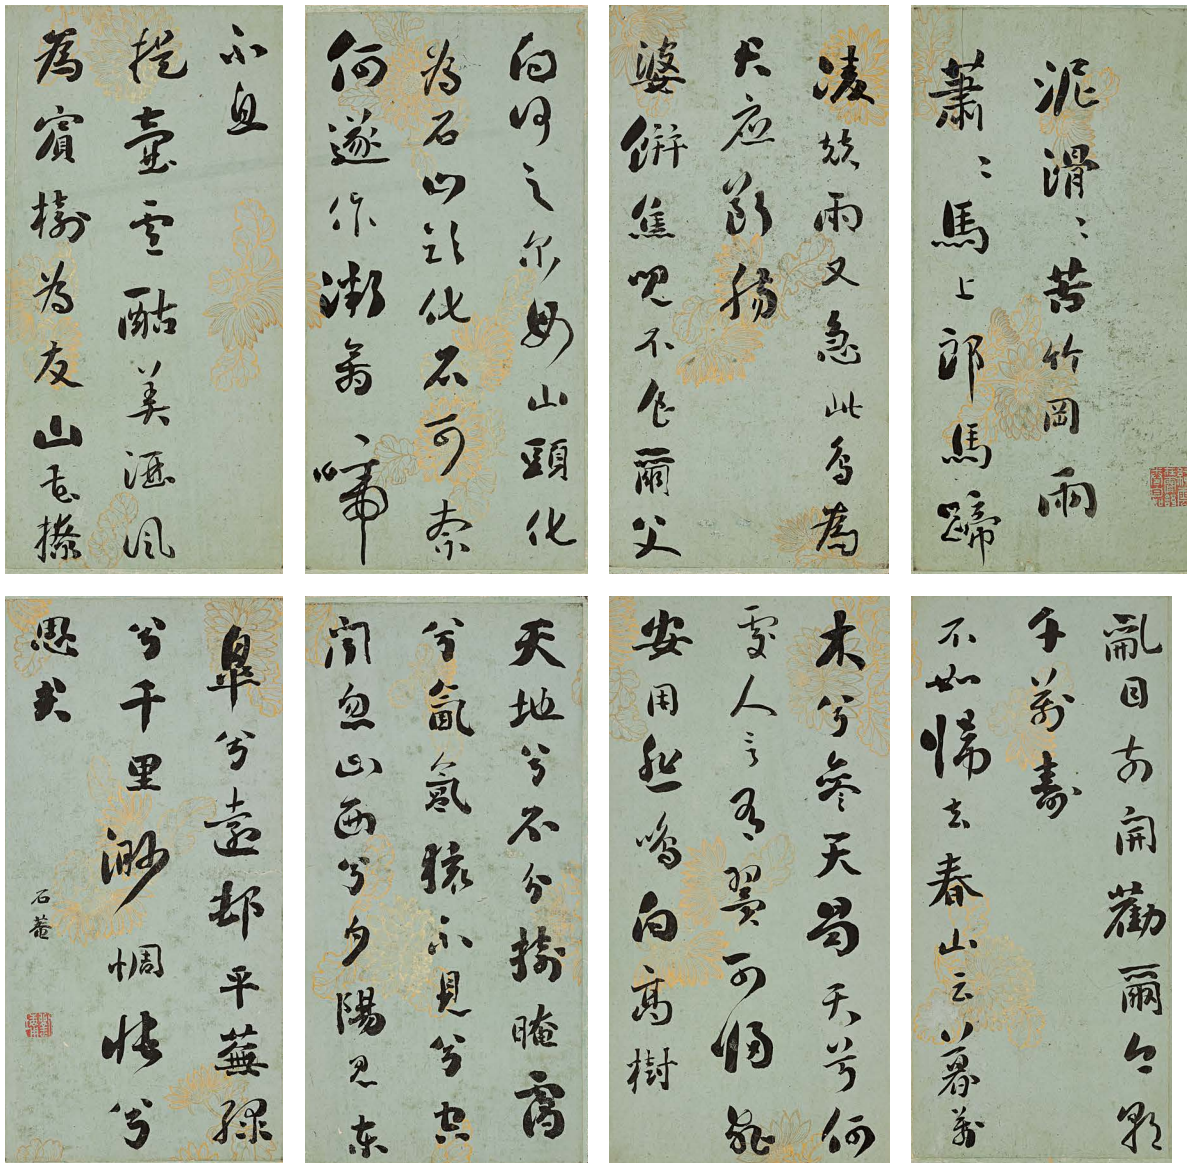 泥滑〻苦竹岡雨
蕭〻馬上郎馬蹄
凌兢雨又急此鳥為
君應斷腸
婆餅焦兒不食爾父
向何之尔母山頭化
為石山頭化石可奈
何遂作微禽啼
不息
提壺蘆酤美酒風
為賓樹為友山花撩
亂目前開勸爾今朝
千萬壽
不如歸去春山云暮萬
木兮參天蜀天兮何
處人言有翼可歸飛
安用悲鳴向高樹
天地兮不分樹晻靄
兮氤氳猿不見兮空
聞忽山西兮夕陽見東
皋兮遠邨平蕪綠
兮千里渺惆悵兮
思君
石菴